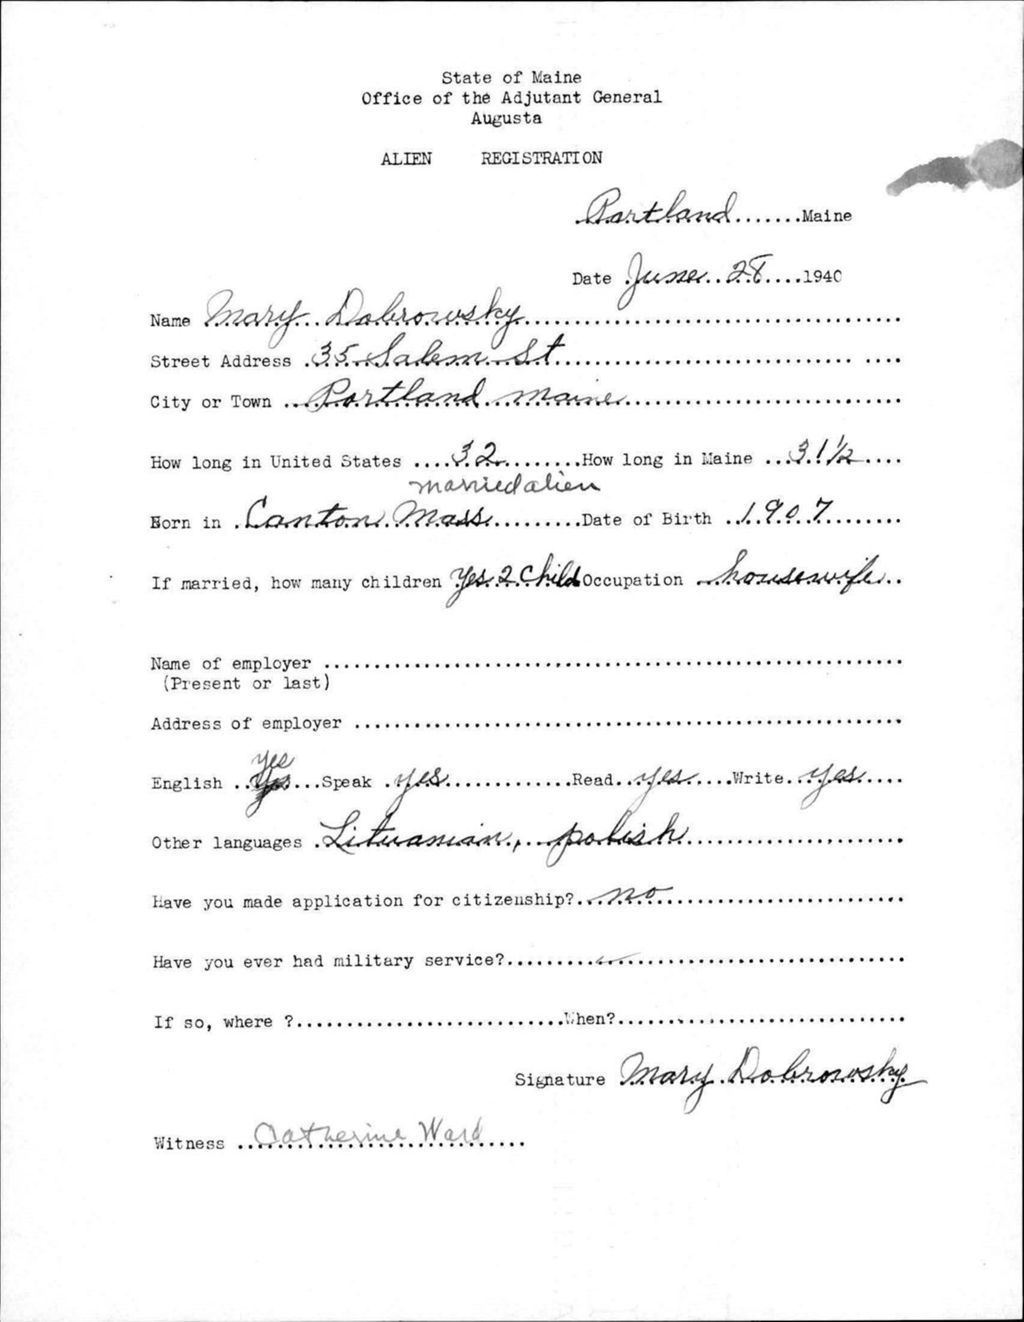 State of Maine
Office of the Adjutant General
Augusta
ALIEN REGISTRATION
Portland.......Maine
Date June..28....1940
Name Mary...Dobrowsky......................................
Street Address .35..Salem..St..................................
City or Town ...Portland..Maine............................
How long in United States ....32.........How long in Maine ...31½....
married alien
Born in .Canton.Mass..........Date of Birth ..1907........
If married, how many children Yes.2.Child Occupation ..housewife..
Name of employer ............................................................
(Present or last)
Address of employer .........................................................
Yes
English ..Yes...Speak .yes.............Read..yes....Write..yes....
Other languages .Lituanian,..polish.......................
Have you made application for citizenship?...no.........................
Have you ever had military service?.........................................
If so, where ?...........................When?..............................
Signature Mary.Dobrowsky
Witness ..Catherine Ward.....